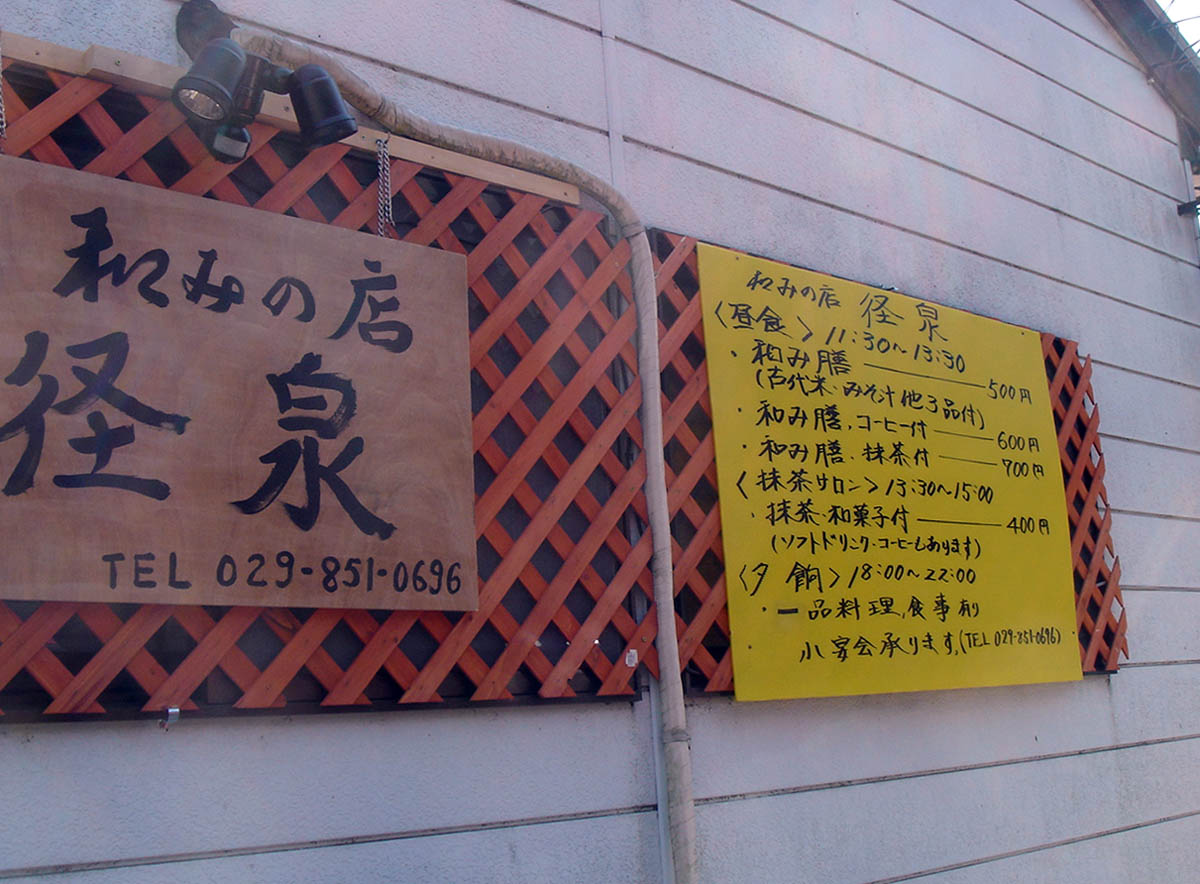 和みの店
径泉
TEL 029-851-0696
和みの店 径泉
〈昼食〉11:30〜13:30
・和み膳 ―― 500円
(古代米・みそ汁他3品付)
・和み膳、コーヒー付 ―― 600円
・和み膳・抹茶付 ―― 700円
〈抹茶サロン〉13:30〜15:00
・抹茶・和菓子付 ―― 400円
(ソフトドリンク・コーヒーもあります)
〈夕餉〉18:00〜22:00
・一品料理、食事有り
小宴会承ります。(TEL 029-851-0696)